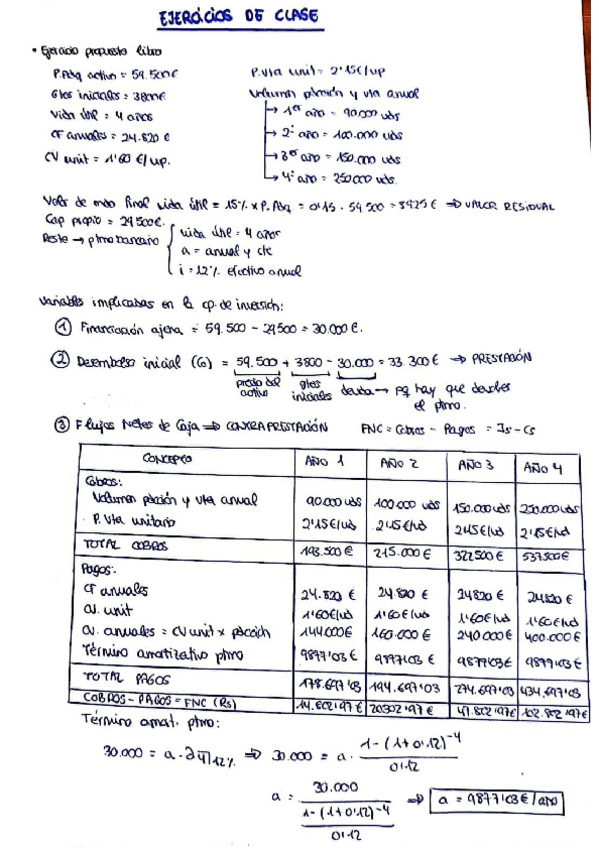 EJERCICIOS DE CLASE
• Ejercicio propuesto libro
P.Adq activo = 59.500€
Gtos iniciales = 3800€
Vida útil = 4 años
CF anuales = 24.820 €
CV unit = 1'60 €/up.
P.Vta unit = 2'15€/up
Volumen pdcción y vta anual
→ 1er año = 90.000 uds
→ 2º año = 100.000 uds
→ 3er año = 150.000 uds
→ 4º año = 250.000 uds.
Valor de mdo final vida útil = 15% x P. Adq = 0'15 · 59 500 = 8925 € ⇒ VALOR RESIDUAL
Cap propio = 29 500€.
Resto → ptmo bancario
vida útil = 4 años
a = anual y cte
i = 12% efectivo anual
Variables implicadas en la op. de inversión:
① Financiación ajena = 59.500 - 29500 = 30.000 €.
② Desembolso inicial (G) = 59.500 + 3800 - 30.000 = 33 300€ ⇒ PRESTACIÓN
precio del activo
gtos iniciales
deuda → pq hay que devolver el ptmo.
③ Flujos Netos de Caja ⇒ CONTRAPRESTACIÓN FNC = Cobros - Pagos = Is - Cs
CONCEPTO AÑO 1 AÑO 2 AÑO 3 AÑO 4
Cobros:
Volumen pdcción y vta anual 90.000 uds 100 000 uds 150.000 uds 250.000 uds
P. Vta unitario 2'15€/ud 2'15€/ud 2'15€/ud 2'15€/ud
TOTAL COBROS 193.500 € 215.000 € 322500 € 537500€
Pagos:
CF anuales 24.820 € 24.820 € 24820 € 24820 €
CV. unit 1'60€/ud 1'60€/ud 1'60€/ud 1'60€/ud
CV. anuales = CV unit x pdcción 144.000€ 160.000 € 240 000€ 400.000€
Término amortizativo ptmo 9877'03 € 9877'03 € 9877'03€ 9877'03€
TOTAL PAGOS 178.697'03 194.697'03 274.697'03 434.697'03
COBROS - PAGOS = FNC (Rs) 14.802'97€ 20302'97€ 47.802'97€ 102.802'97€
Término amort. ptmo:
30.000 = a · a 4|12% ⇒ 30.000 = a · 1 - (1 + 0'12)^-4 / 0'12
a = 30.000 / 1 - (1 + 0'12)^-4 / 0'12 ⇒ a = 9877'03€/año